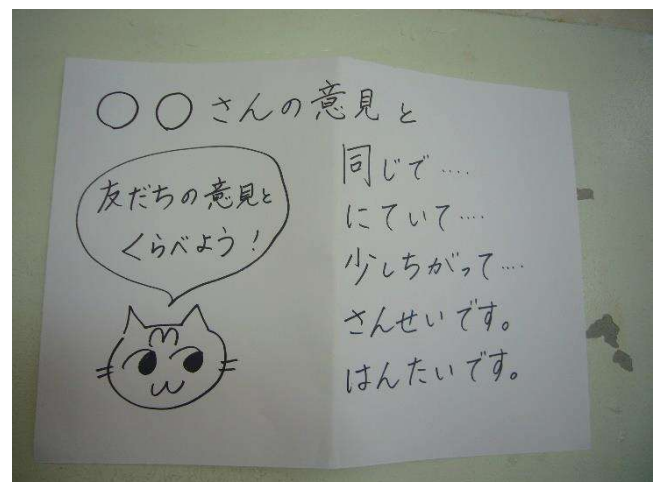 ○○さんの意見と
友だちの意見と
くらべよう!
同じで‥‥
にていて‥‥
少しちがって‥‥
さんせいです。
はんたいです。